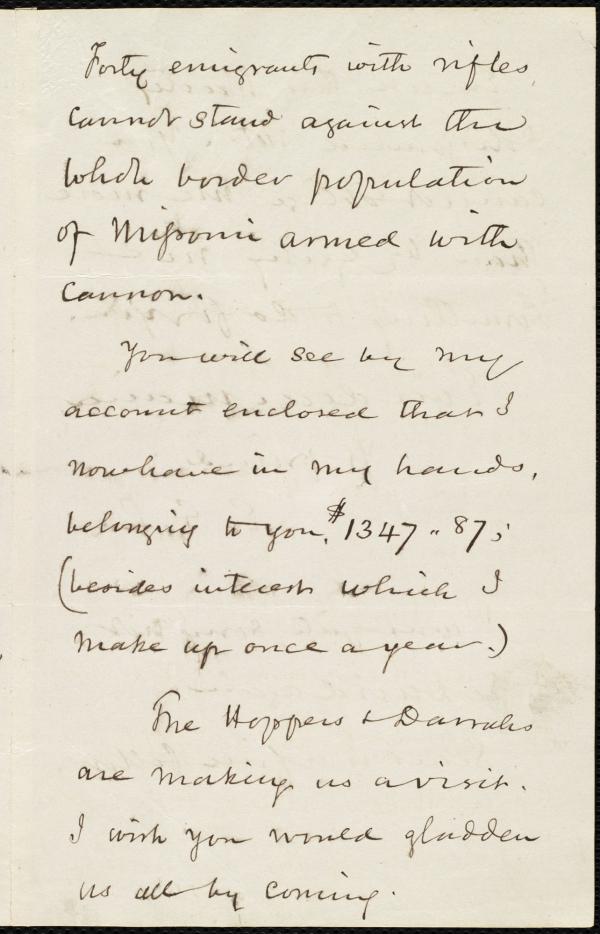 Forty emigrants with rifles,
cannot stand against the
whole border population
of Missouri armed with
cannon.
You will see by my
account enclosed that I
now have in my hands,
belonging to you, $1347 " 87;
(besides interest which I
make up once a year.)
The Hoppers & Darrahs
are making us a visit.
I wish you would gladden
us all by coming.